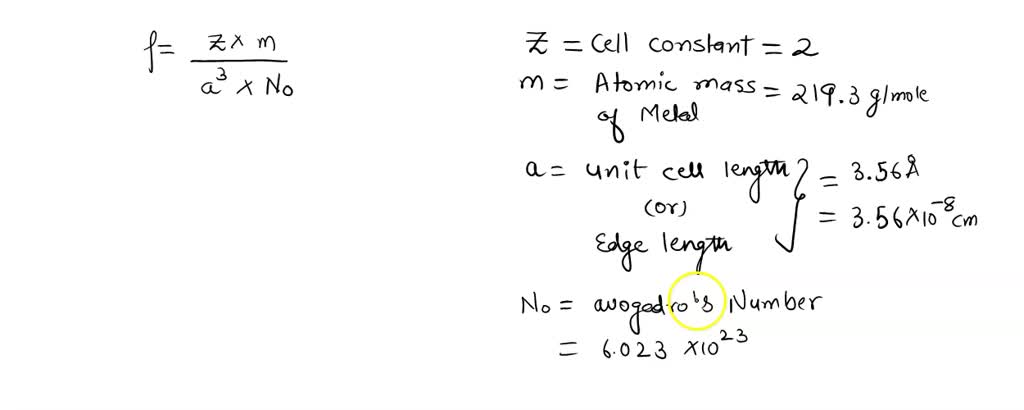 f = Z × m / a³ × No
Z = Cell constant = 2
m = Atomic mass of Metal = 219.3 g/mole
a = unit cell length (or) Edge length } = 3.56 Å
= 3.56 × 10⁻⁸ cm
No = avogadro's Number
= 6.023 × 10²³